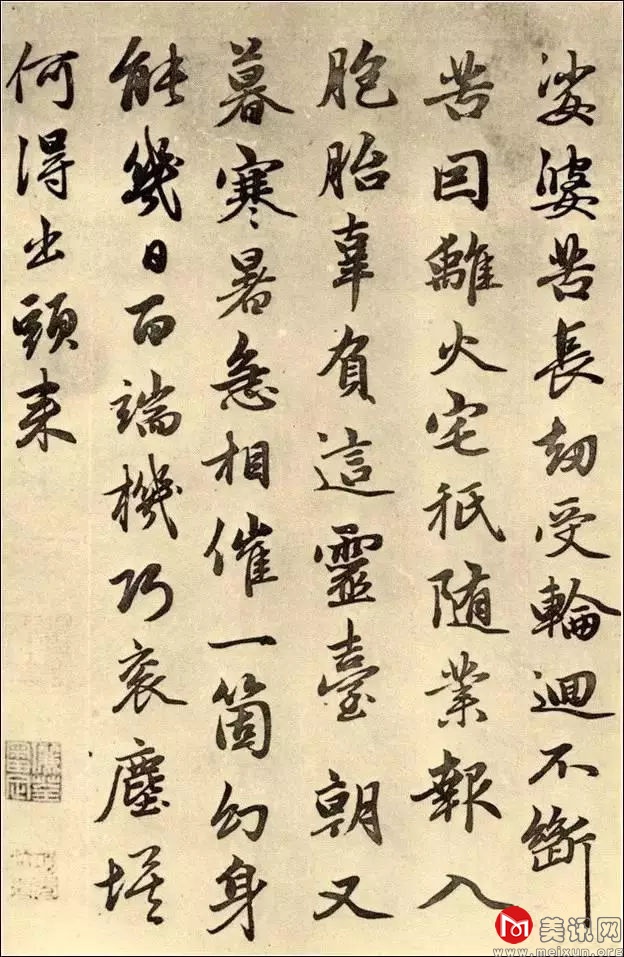 娑婆苦長劫受輪迴不斷
苦囙離火宅秖随業報入
胞胎辜負這靈臺朝又
暮寒暑急相催一箇幻身
能幾日百端機巧衮塵埃
何得出頭来
美讯网
www.meixun.org